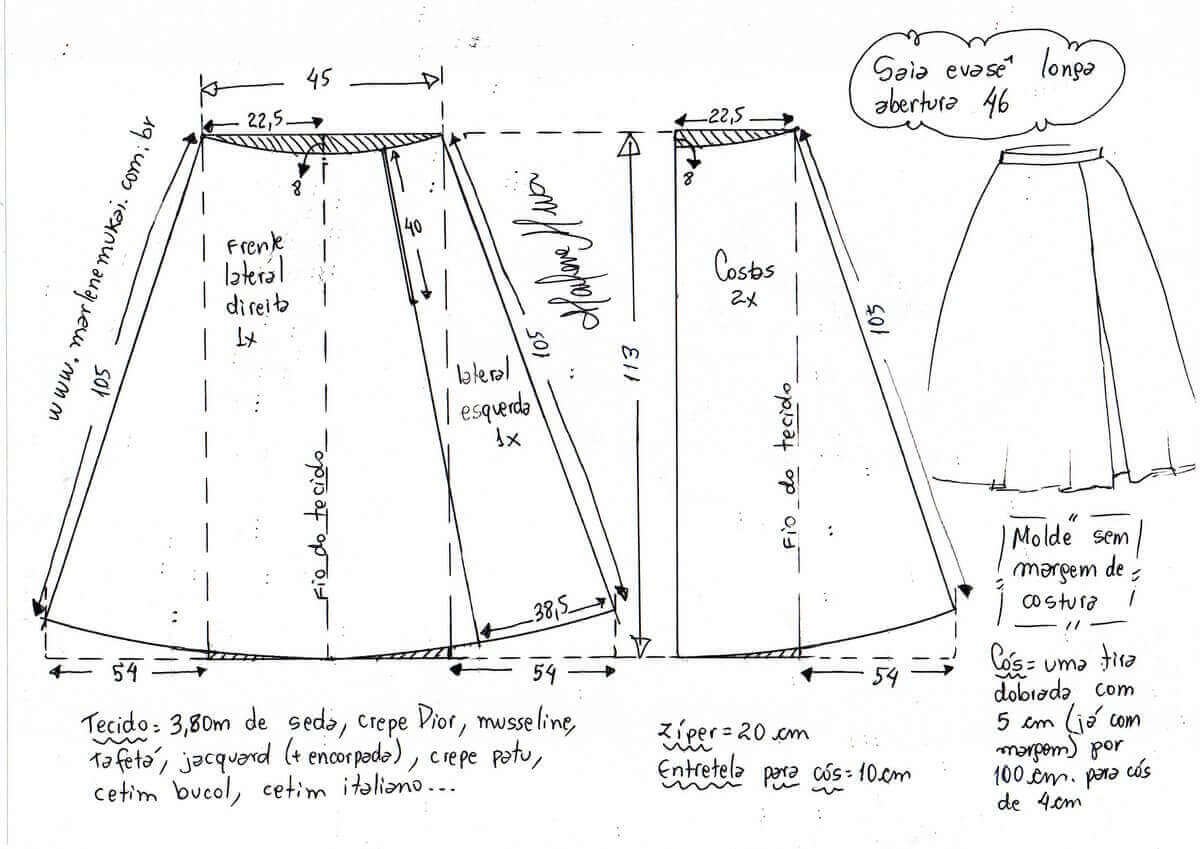 Saia evasê longa
abertura 46
www.marlenemukai.com.br
45
22,5
8
40
Frente
lateral
direita
1x
lateral
esquerda
1x
Fio do tecido
105
105
38,5
54
54
113
22,5
8
Costas
2x
Fio do tecido
105
54
Molde sem
margem de
costura
Cós = uma tira
dobrada com
5 cm (já com
margem) por
100 cm. para cós
de 4 cm
Tecido = 3,80m de seda, crepe Dior, musseline,
tafetá, jacquard (+ encorpada), crepe patu,
cetim bucol, cetim italiano...
Zíper = 20 cm
Entretela para cós = 10 cm